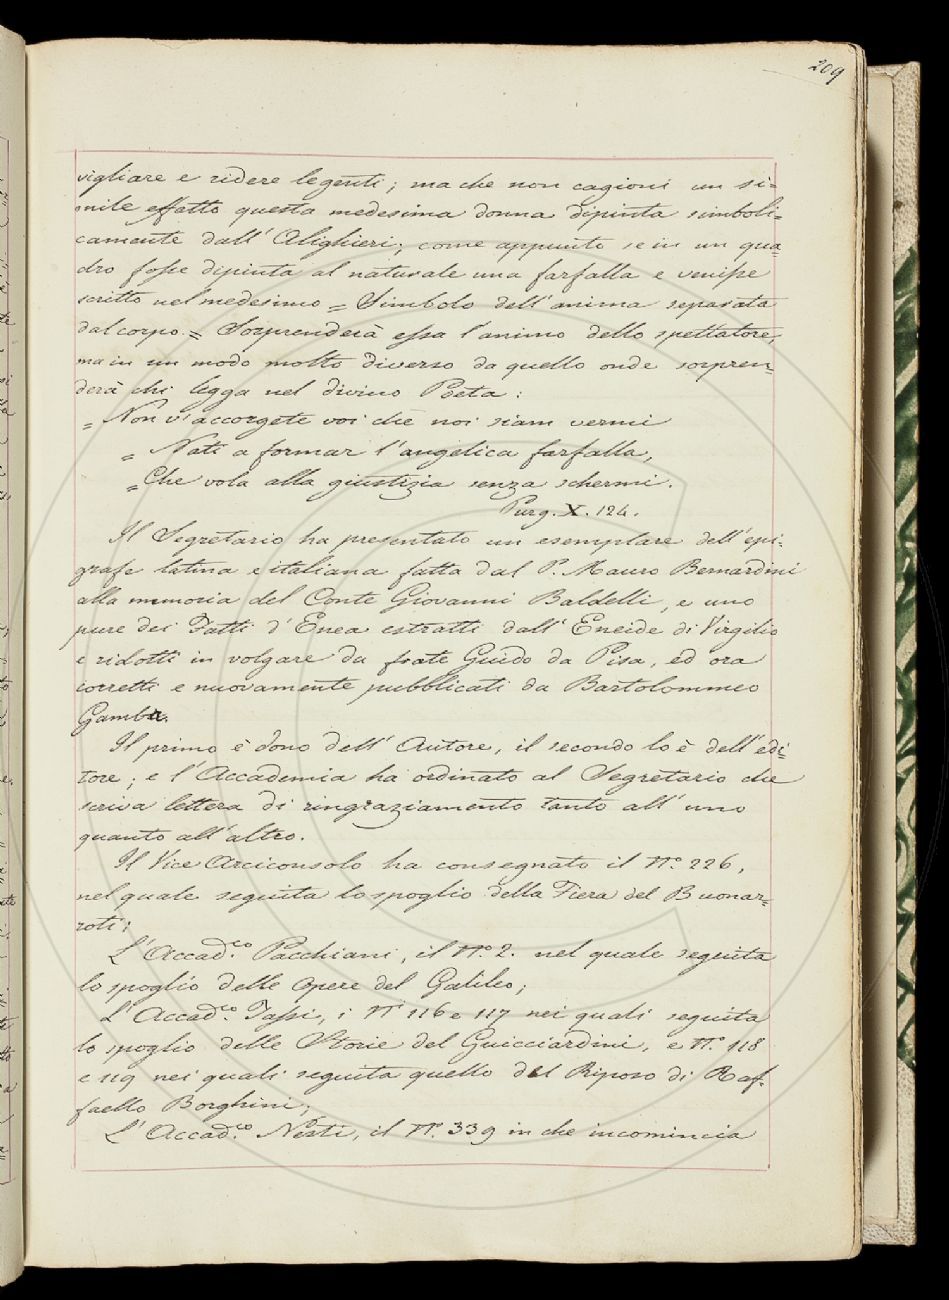 209
vigliare e ridere le genti; ma che non cagioni un si=
mile effetto questa medesima donna dipinta simboli=
camente dall' Alighieri; come appunto se in un qua=
dro fosse dipinta al naturale una farfalla e venisse
scritto nel medesimo = Simbolo dell' anima separata
dal corpo. = Sorprenderà essa l'animo dello spettatore,
ma in un modo molto diverso da quello onde sorpren=
derà chi legga nel divino Poeta:
= Non v'accorgete voi che noi siam vermi
= Nati a formar l'angelica farfalla,
= Che vola alla giustizia senza schermi.
Purg. X. 124.
Il Segretario ha presentato un esemplare dell' epi-
grafe latina e italiana fatta dal P. Mauro Bernardini
alla memoria del Conte Giovanni Baldelli, e uno
pure dei Fatti d'Enea estratti dall' Eneide di Virgilio
e ridotti in volgare da frate Guido da Pisa, ed ora
corretti e nuovamente pubblicati da Bartolommeo
Gamba.
Il primo è dono dell' Autore, il secondo lo è dell' edi=
tore; e l'Accademia ha ordinato al Segretario che
scriva lettera di ringraziamento tanto all' uno
quanto all' altro.
Il Vice Arciconsolo ha consegnato il N.º 226,
nel quale seguita lo spoglio della Fiera del Buonar=
roti;
L'Accad.co Pacchiani, il N.º 2. nel quale seguita
lo spoglio delle Opere del Galileo;
L'Accad.co Tassi, i N.i 116 e 117 nei quali seguita
lo spoglio delle Storie del Guicciardini, e N.º 118
e 119 nei quali seguita quello del Riposo di Raf-
faello Borghini;
L'Accad.co Nesti, il N.º 339 in che incomincia